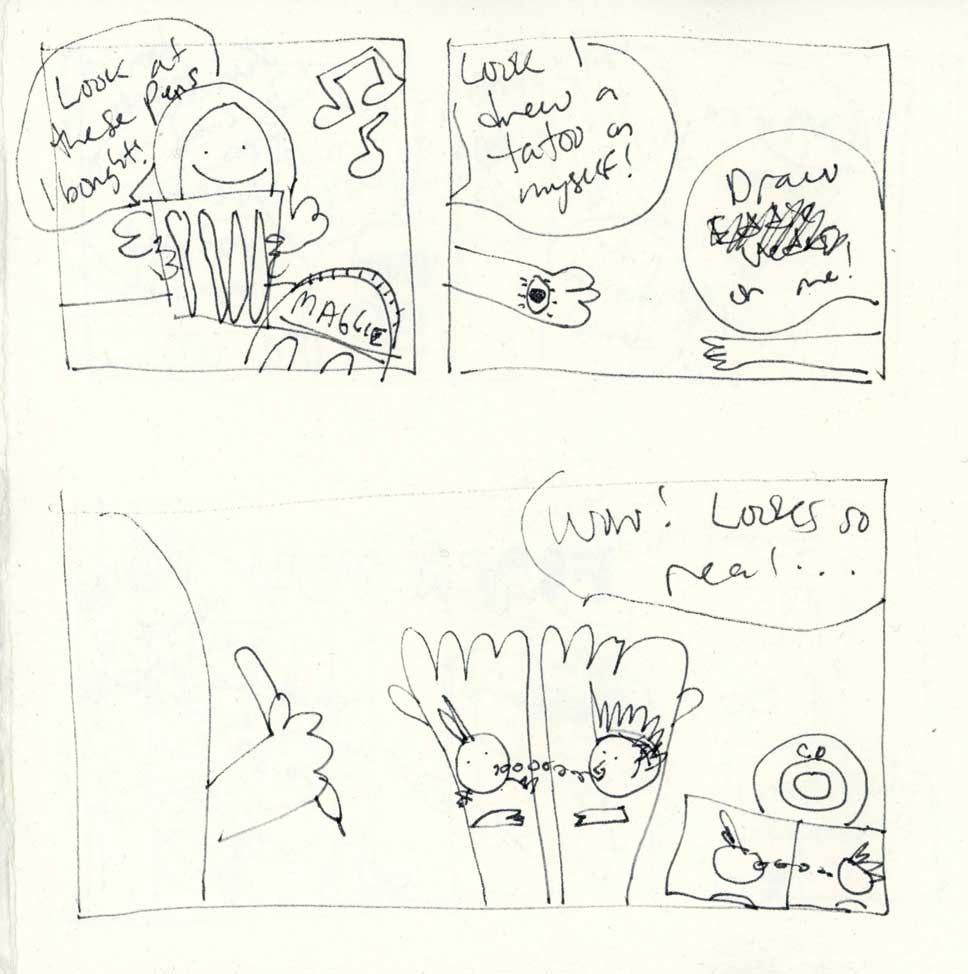 Look at
these pens
I bought!
MAGGIE
Look I
drew a
tatoo on
myself!
Draw
on me!
Wow! Looks so
real...
CD